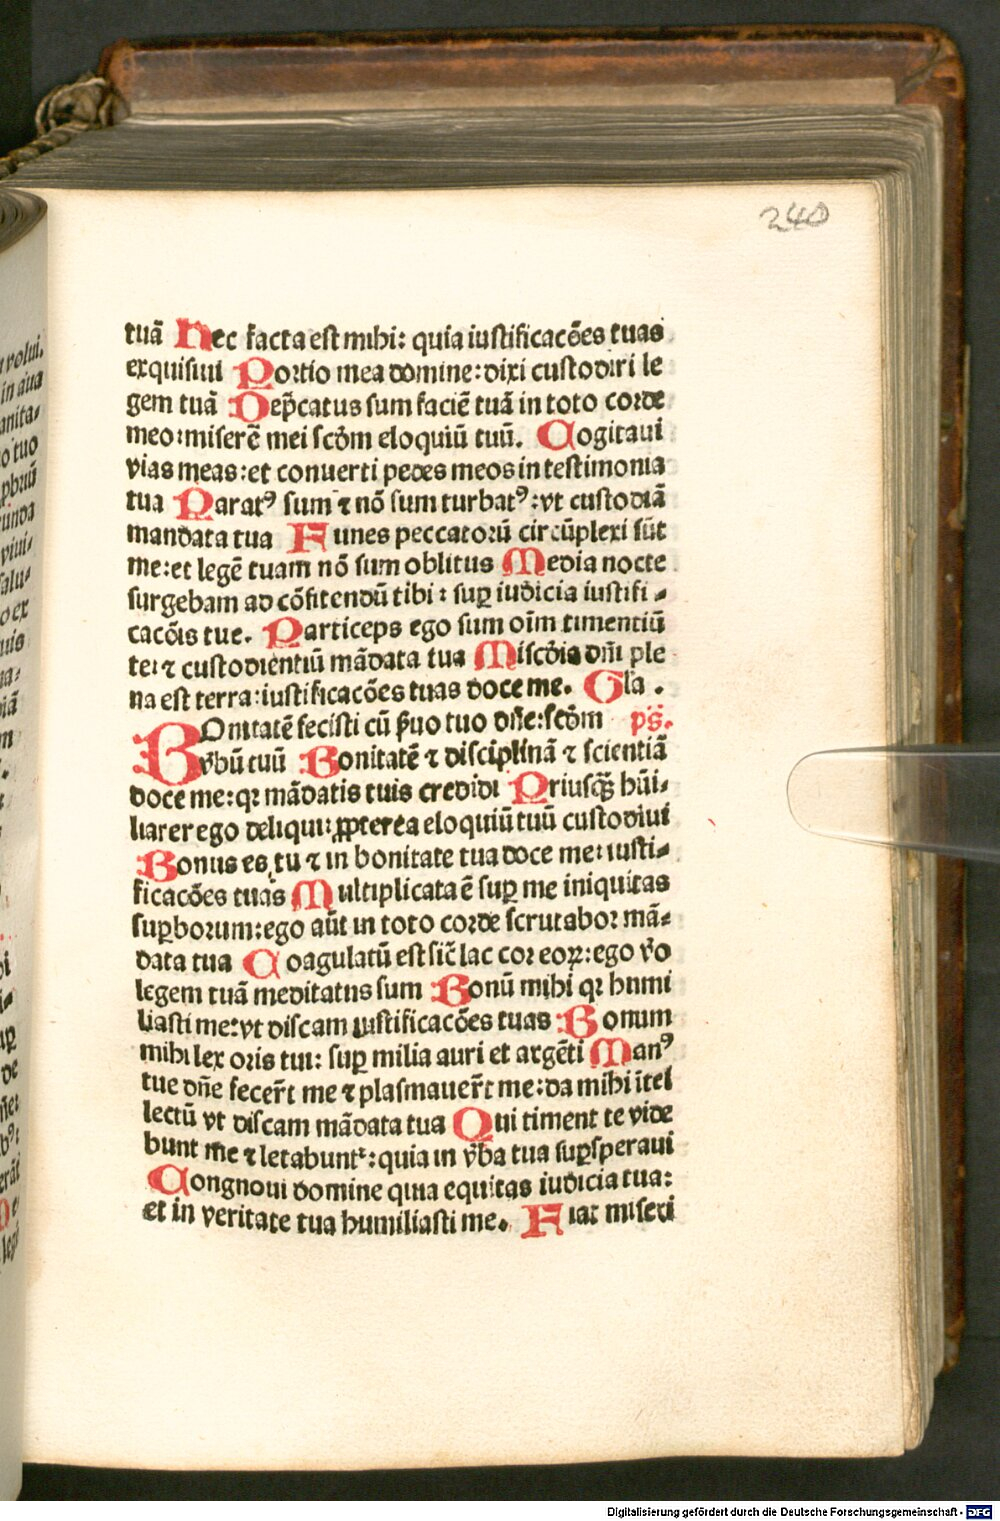 240
tuā Nec facta est mihi: quia iustificacōes tuas
exquisiui Portio mea domine: dixi custodiri le
gem tuā Dep̄catus sum faciē tuā in toto corde
meo: miserē mei scd̄m eloquiū tuū. Cogitaui
vias meas: et conuerti pedes meos in testimonia
tua Paratꝰ sum ⁊ nō sum turbatꝰ: vt custodiā
mandata tua Funes peccatorū circūplexi sūt
me: et legē tuam nō sum oblitus Media nocte
surgebam ad cōfitendū tibi: suꝑ iudicia iustifi-
cacōis tue. Particeps ego sum oīm timentiū
te: ⁊ custodientiū mādata tua Miscd̄ia dn̄i ple
na est terra: iustificacōes tuas doce me. Gl̄a.
BOnitatē fecisti cū ẜuo tuo dn̄e: scd̄m ps̄.
v̄bū tuū Bonitatē ⁊ disciplinā ⁊ scientiā
doce me: qꝛ mādatis tuis credidi Priusqȝ hūi-
liarer ego deliqui: ꝓpterea eloquiū tuū custodiui
Bonus es tu ⁊ in bonitate tua doce me: iusti-
ficacōes tuas Multiplicata ē suꝑ me iniquitas
suꝑborum: ego aūt in toto corde scrutabor mā-
data tua Coagulatū est sic̄ lac cor eoꝝ: ego v̄o
legem tuā meditatus sum Bonū mihi qꝛ humi
liasti me: vt discam iustificacōes tuas Bonum
mihi lex oris tui: suꝑ milia auri et argēti Manꝰ
tue dn̄e fecer̄t me ⁊ plasmauer̄t me: da mihi ītel
lectū vt discam mādata tua Qui timent te vide
bunt me ⁊ letabunt᷑: quia in v̄ba tua suꝑsperaui
Congnoui domine quia equitas iudicia tua:
et in veritate tua humiliasti me. Fiat miseri
Digitalisierung gefördert durch die Deutsche Forschungsgemeinschaft - DFG